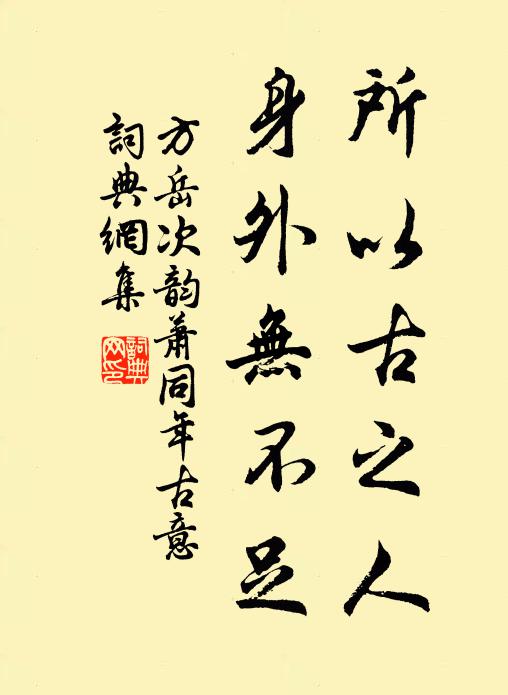 所以古之人
身外無不足
方岳次韵萧同年古意
詞典網集
詞典
网印